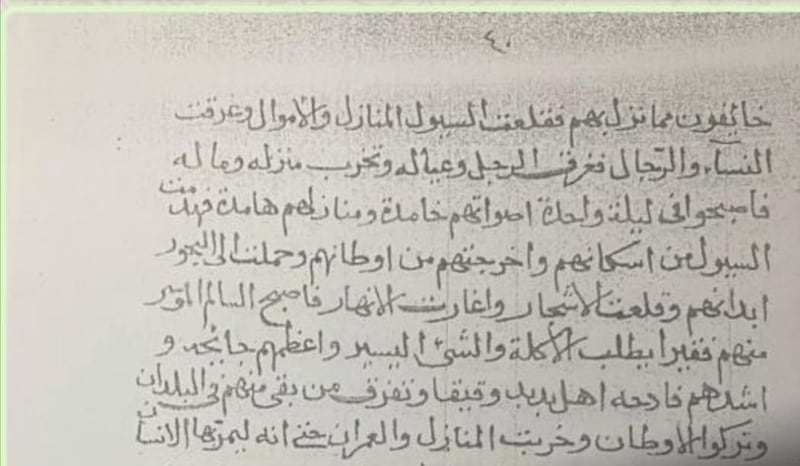 ٤٠
خائفون مما نزل بهم فقلعت السيول المنازل والاموال وغرقت
النسآء والرّجال فغرق الرجل وعياله وتخرب منزله وماله
فاصبحوا في ليلة واحدة اصواتهم خامدة ومنازلهم هامدة فهدمت
السيول من اسكانهم واخرجتهم من اوطانهم وحملت الى البحور
ابدانهم وقلعت الاشجار واغارت الانهار فاصبح السالم
منهم فقيرا يطلب الاكلة والشئ اليسير واعظمهم جائحه و
اشدهم فادحه اهل بدبد وقيقا وتفرق من بقى منهم في البلدان
وتركوا الاوطان وخربت المنازل والعمران حتى انه ليمرّ بها الانسان